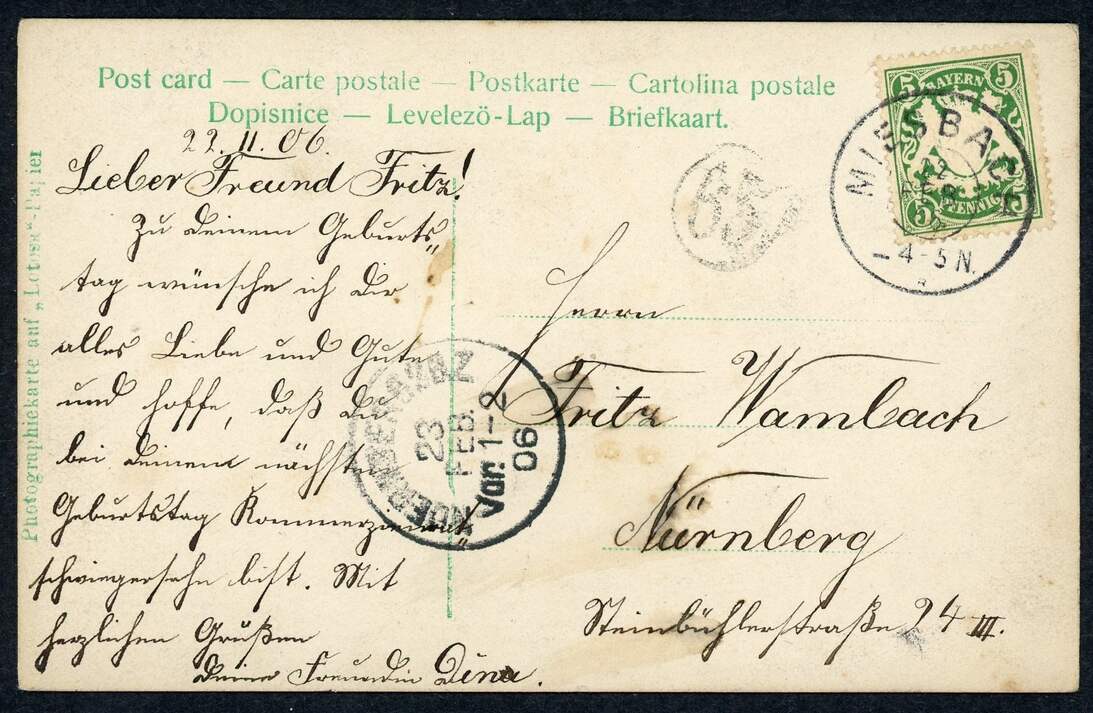 Post card — Carte postale — Postkarte — Cartolina postale
Dopisnice — Levelezö-Lap — Briefkaart.
22.II.06.
Lieber Freund Fritz!
Zu deinem Geburts„
tag wünsche ich dir
alles Liebe und Gute
und hoffe, daß du
bei deinem nächsten
Geburtstag Kommerzienrat„
schwiegersohn bist. Mit
herzlichen Grüßen
deine Freundin Dina.
Photographiekarte auf „Lotossa"-Papier
65
BAYERN
5
5
5
5
PFENNIG
MIESBACH
22
FEB
4-5 N.
NUERNBERG
23
FEB.
Vor. 1-2
06
Herrn
Fritz Wambach
Nürnberg
Steinbühlerstraße 24 III.